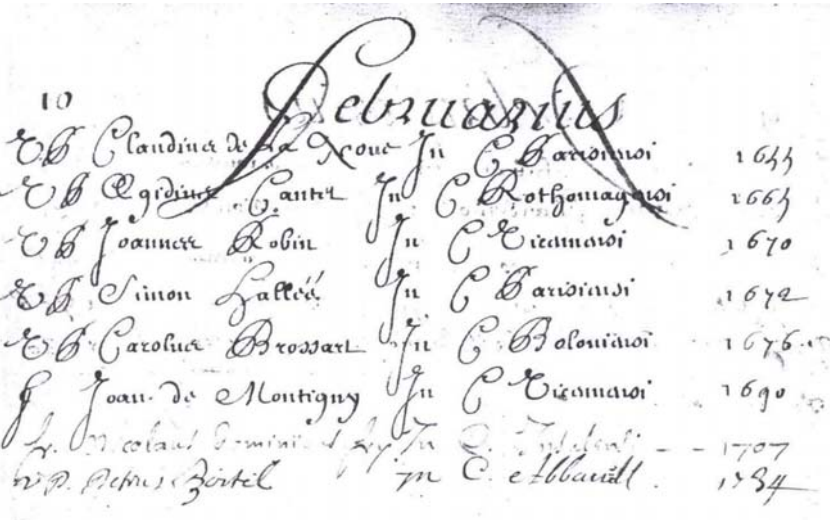 Februarius
10
VP Claudius de La Noue In C Parisiensi 1655
VP Egidius Canter In C Rothomagensi 1665
VP Joannes Robin In C 1670
VP Simon Hallée In C Parisiensi 1672
VP Carolus Brossart In C Boloniensi 1676
f Joan. de Montigny In C 1690
Nicolaus In C. 1707
v P. Petrus In C. 1734